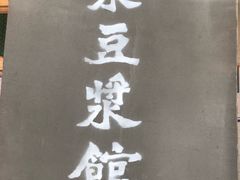 豆漿館